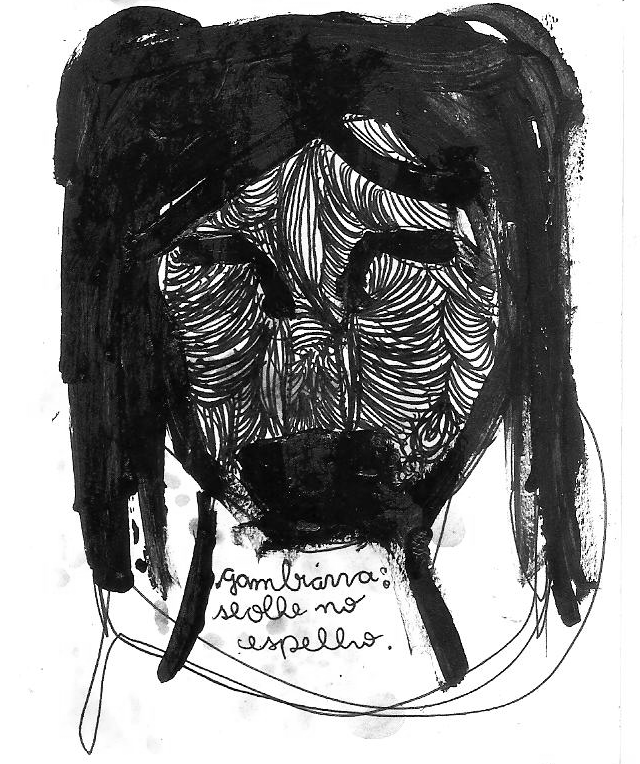 gambiarra:
se olhe no
espelho.